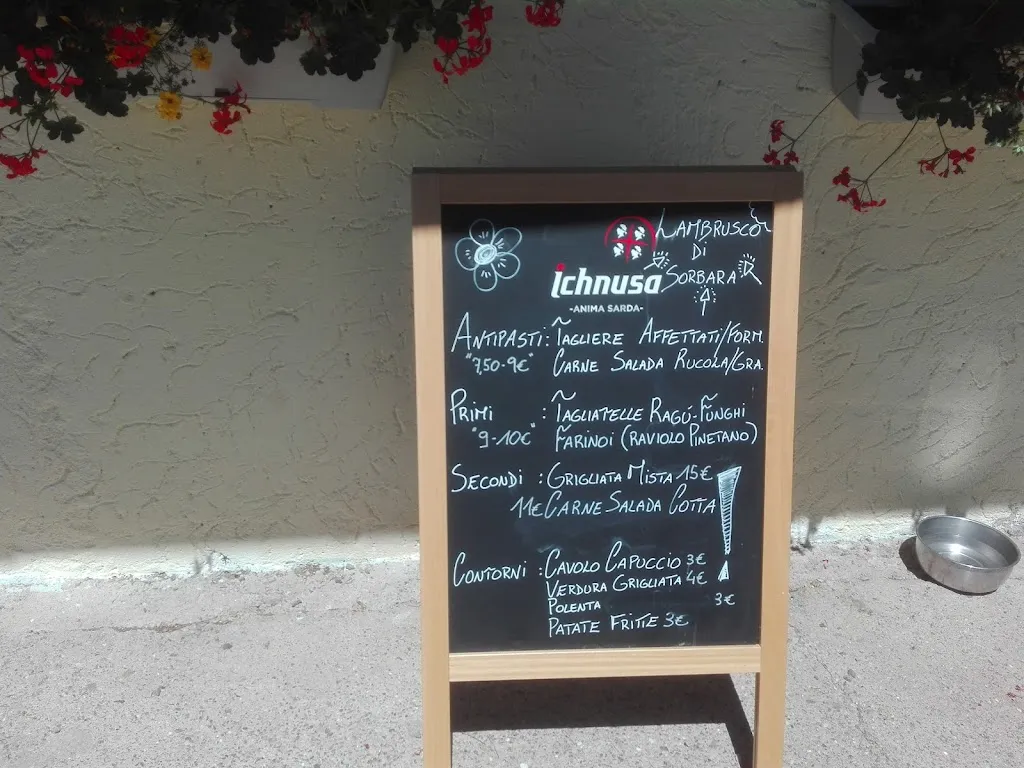 LAMBRUSCO
DI
SORBARA
ichnusa
-ANIMA SARDA-
ANTIPASTI: TAGLIERE AFFETTATI/FORM.
"7,50-9€" CARNE SALADA RUCOLA/GRA.
PRIMI : TAGLIATELLE RAGÚ-FUNGHI
"9-10€" FARINOI (RAVIOLO PINETANO)
SECONDI : GRIGLIATA MISTA 15€
11€ CARNE SALADA COTTA !
CONTORNI : CAVOLO CAPUCCIO 3€
VERDURA GRIGLIATA 4€
POLENTA 3€
PATATE FRITTE 3€